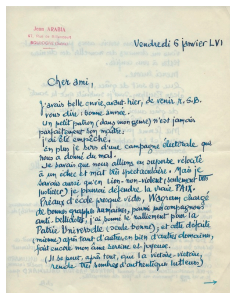 Jean ARABIA
Vendredi 6 janvier LVI
Cher ami,
J'avais belle envie, avant-hier, de venir R. S.B.
vous dire : bonne année.
Un petit patron (dans mon genre) n'est jamais
parfaitement son maître :
j'ai été empêché.
en plus je sors d'une campagne électorale qui
nous a donné du mal.
Je savais que nous allions au superbe, velouté
à un échec et mat très spectaculaire. Mais je
savais aussi qu'en Lien-non-violent (seulement
justicier) je pourrais défendre la vraie PAIX.
Préaux d'école presque vides, Wagram chargé
de bonnes grappes humaines, parmi mes compagnons
anti-bellicistes, j'ai pensé le ralliement pour la
Patrie Universelle (seule bonne), et cette défaite
(même), après tant d'autres, en bien d'autres domaines,
fait encore mon âme sereine et joyeuse.
(Il se peut, après tout, que la victoire-victoire,
rende très sombre d'authentiques lutteurs)